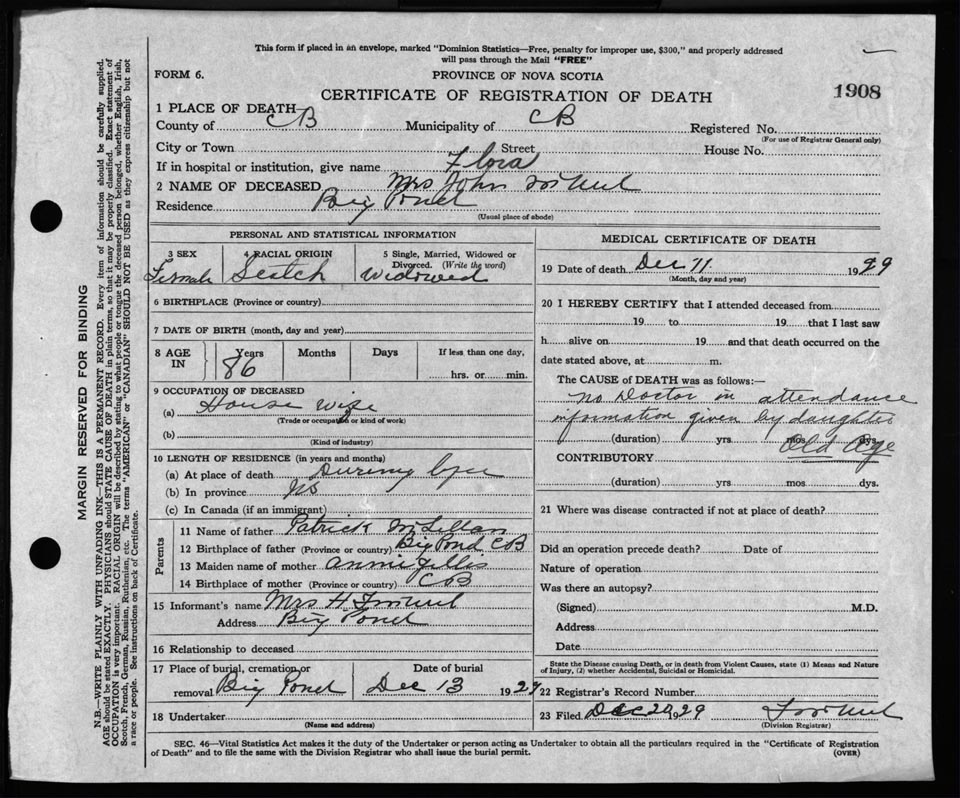 This form if placed in an envelope, marked "Dominion Statistics—Free, penalty for improper use, $300," and properly addressed
will pass through the Mail "FREE"
FORM 6.
PROVINCE OF NOVA SCOTIA
CERTIFICATE OF REGISTRATION OF DEATH
1908
1 PLACE OF DEATH
County of CB Municipality of CB Registered No.
(For use of Registrar General only)
City or Town Street House No.
If in hospital or institution, give name Flora
2 NAME OF DECEASED Mrs John McNeil
Residence Big Pond
(Usual place of abode)
PERSONAL AND STATISTICAL INFORMATION
3 SEX
4 RACIAL ORIGIN
5 Single, Married, Widowed or
Divorced. (Write the word)
Female Scotch Widowed
6 BIRTHPLACE (Province or country)
7 DATE OF BIRTH (month, day and year)
8 AGE
IN
Years
86
Months
Days
If less than one day,
hrs. or min.
9 OCCUPATION OF DECEASED
(a) House wife
(Trade or occupation or kind of work)
(b)
(Kind of industry)
10 LENGTH OF RESIDENCE (in years and months)
(a) At place of death During life
(b) In province NS
(c) In Canada (if an immigrant)
Parents
11 Name of father Patrick McLellan
12 Birthplace of father (Province or country) Big Pond CB
13 Maiden name of mother Annie Gillis
14 Birthplace of mother (Province or country) CB
15 Informant's name Mrs H F McNeil
Address Big Pond
16 Relationship to deceased
17 Place of burial, cremation or
removal Big Pond
Date of burial
Dec 13 1929
18 Undertaker
(Name and address)
MEDICAL CERTIFICATE OF DEATH
19 Date of death Dec 11 1929
(Month, day and year)
20 I HEREBY CERTIFY that I attended deceased from
19 to 19 that I last saw
h alive on 19 and that death occurred on the
date stated above, at m.
The CAUSE of DEATH was as follows:—
No Doctor in attendance
information given by daughter
(duration) yrs mos dys.
Old Age
CONTRIBUTORY
(duration) yrs mos dys.
21 Where was disease contracted if not at place of death?
Did an operation precede death? Date of
Nature of operation
Was there an autopsy?
(Signed) M.D.
Address
Date
State the Disease causing Death, or in death from Violent Causes, state (1) Means and Nature
of Injury, (2) whether Accidental, Suicidal or Homicidal.
22 Registrar's Record Number
23 Filed Dec 20 1929
(Division Registrar)
SEC. 46—Vital Statistics Act makes it the duty of the Undertaker or person acting as Undertaker to obtain all the particulars required in the "Certificate of Registration
of Death" and to file the same with the Division Registrar who shall issue the burial permit.
(OVER)
MARGIN RESERVED FOR BINDING
N.B.—WRITE PLAINLY WITH UNFADING INK—THIS IS A PERMANENT RECORD. Every item of information should be carefully supplied.
AGE should be stated EXACTLY. PHYSICIANS should STATE CAUSE OF DEATH in plain terms, so that it may be properly classified. Exact statement of
OCCUPATION is very important. RACIAL ORIGIN will be described by stating to what people or tongue the deceased person belonged, whether English, Irish,
Scotch, French, German, Russian, Ruthenian, etc. The terms "AMERICAN" or "CANADIAN" SHOULD NOT BE USED as they express citizenship but not
a race or people. See instructions on back of Certificate.